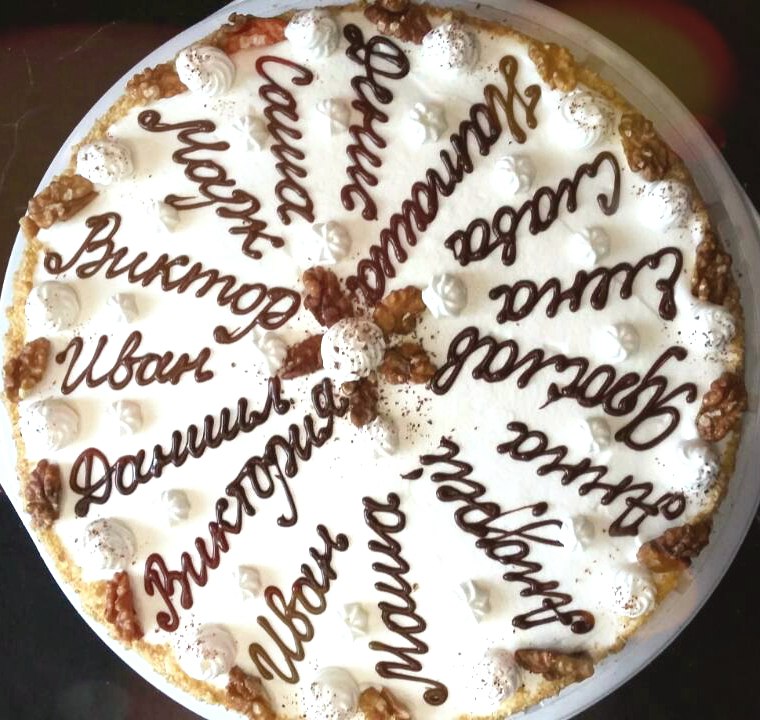 Денис
Наташа
Слава
Елена
Ярослав
Анна
Андрей
Маша
Иван
Виктория
Даниил
Иван
Виктор
Марк
Саша